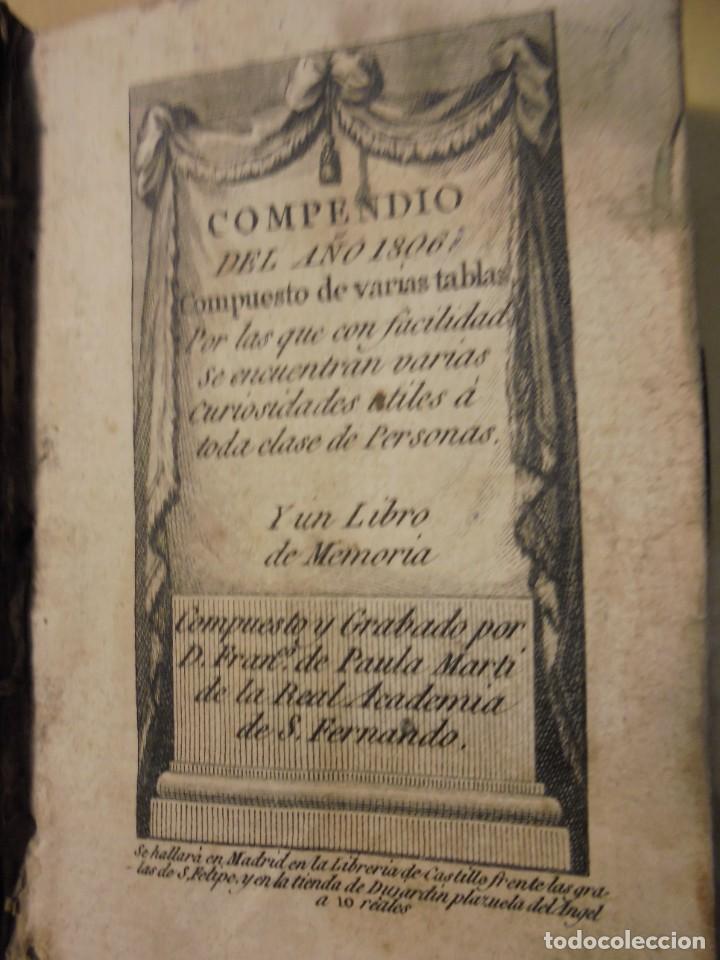 COMPENDIO
DEL AÑO 1806.
Compuesto de varias tablas,
Por las que con facilidad
Se encuentran varias
Curiosidades utiles á
toda clase de Personas.
Y un Libro
de Memoria
Compuesto y Grabado por
D. Franco. de Paula Marti
de la Real Academia
de S. Fernando.
Se hallará en Madrid en la Libreria de Castillo frente las gra-
-las de S. Felipe, y en la tienda de Dujardin plazuela del Angel
a 10 reales
todocoleccion